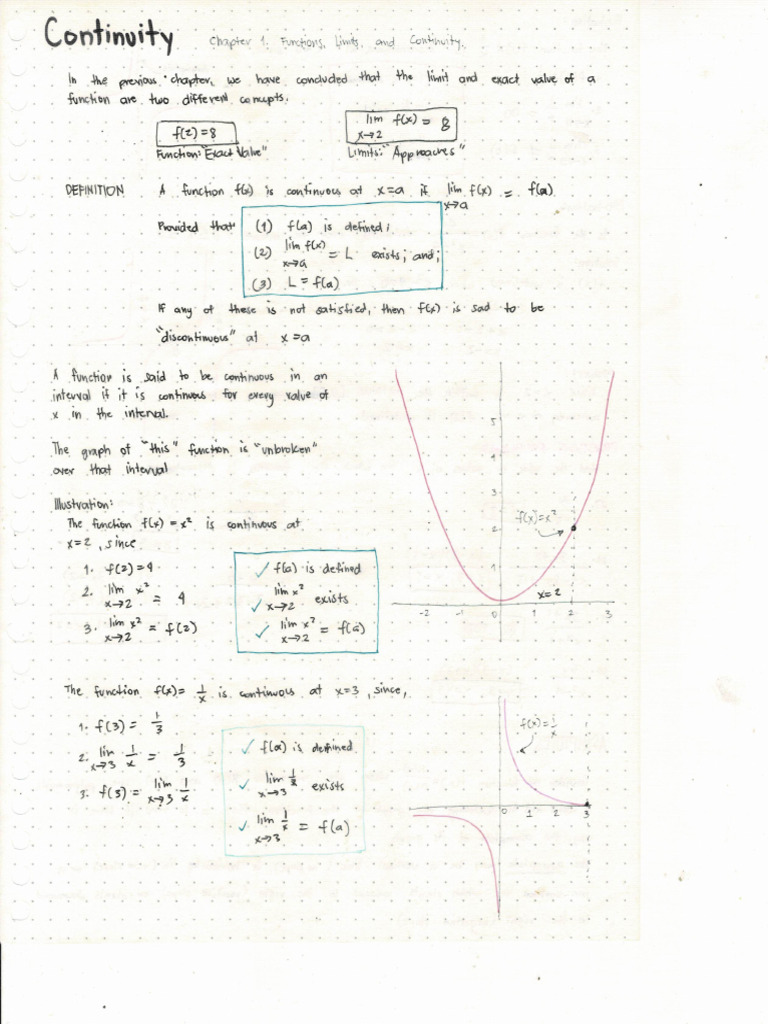 Continuity Chapter 1. Functions, Limits, and Continuity.
In the previous chapter, we have concluded that the limit and exact value of a
function are two different concepts.
f(2)=8
lim f(x) = 8
x→2
Function: "Exact Value"
Limits: "Approaches"
DEFINITION A function f(x) is continuous at x=a if lim f(x) = f(a)
x→a
Provided that (1) f(a) is defined;
(2) lim f(x) = L exists; and;
x→a
(3) L = f(a)
If any of these is not satisfied, then f(x) is sad to be
"discontinuous" at x=a
A function is said to be continuous in an
interval if it is continuous for every value of
x in the interval.
The graph of "this" function is "unbroken"
over that interval
Illustration:
The function f(x) = x² is continuous at
x=2, since
1. f(2)=4
2. lim x² = 4
x→2
3. lim x² = f(2)
x→2
✓ f(a) is defined
✓ lim x² exists
x→2
✓ lim x² = f(a)
x→2
5
4
3
2
1
f(x)=x²
x=2
-2 -1 0 1 2 3
The function f(x)= 1/x is continuous at x=3, since,
1. f(3) = 1/3
2. lim 1/x = 1/3
x→3
3. f(3) = lim 1/x
x→3
✓ f(a) is defined
✓ lim 1/x exists
x→3
✓ lim 1/x = f(a)
x→3
f(x)=1/x
0 1 2 3